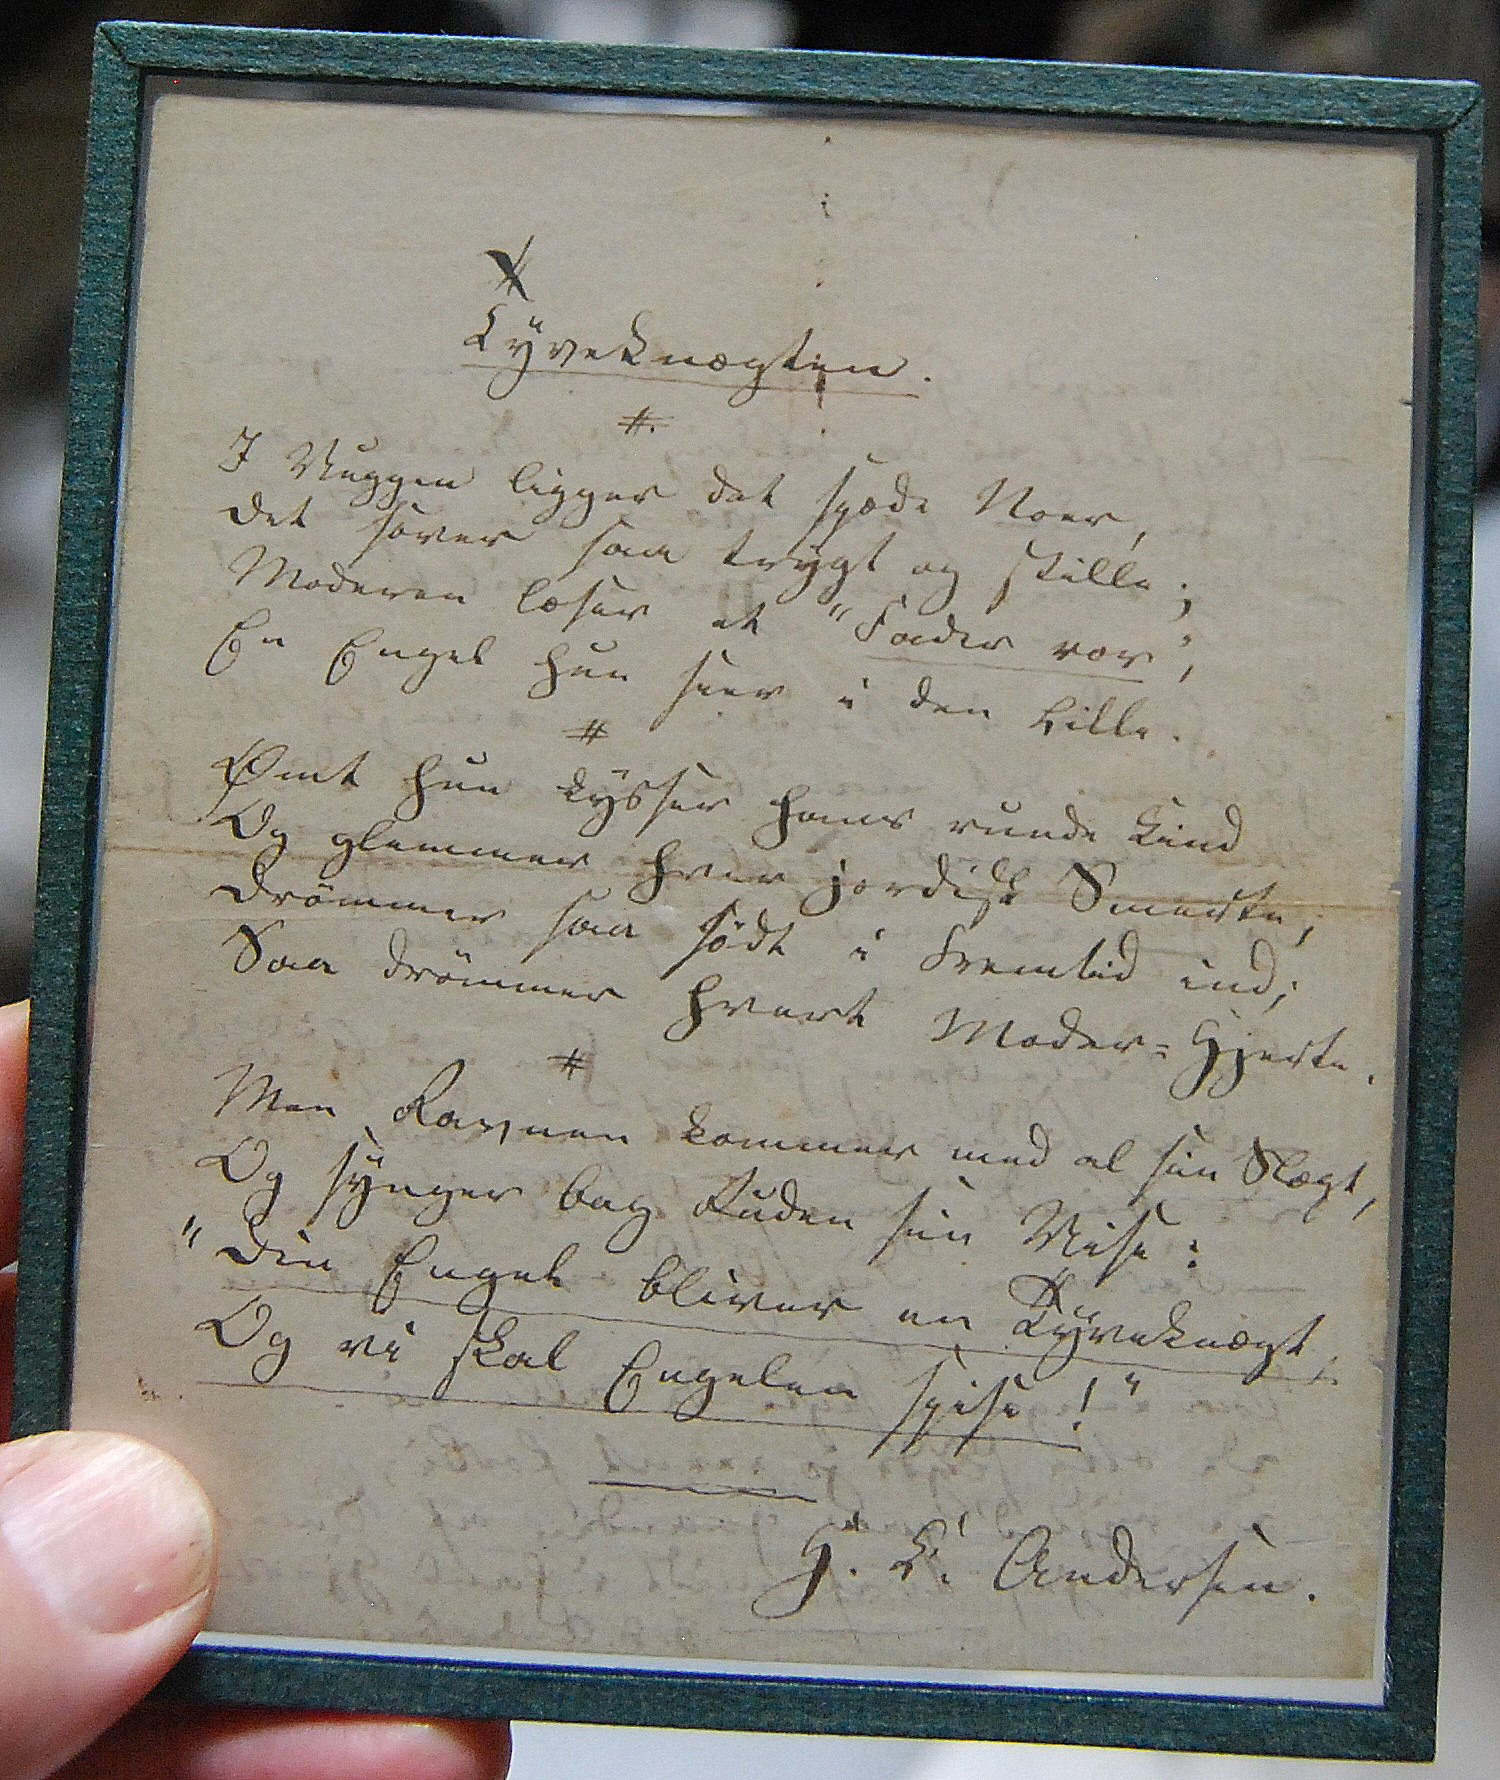 Tyveknægten.
#.
I Vuggen ligger det spæde Noer,
Det sover saa trÿgt og stille;
Moderen læser et "Fader vor",
En Engel hun seer i den Lille.
#
Ømt hun kÿsser hans runde Kind
Og glemmer hver jordisk Smerte,
Drömmer saa södt i Fremtid ind;
Saa drömmer hvert Moder=Hjerte.
#
Men Ravnen kommer med al sin Slægt,
Og sÿnger bag Ruden sin Vise:
"Din Engel bliver en Tÿveknægt,
Og vi skal Engelen spise!"
H. C. Andersen.